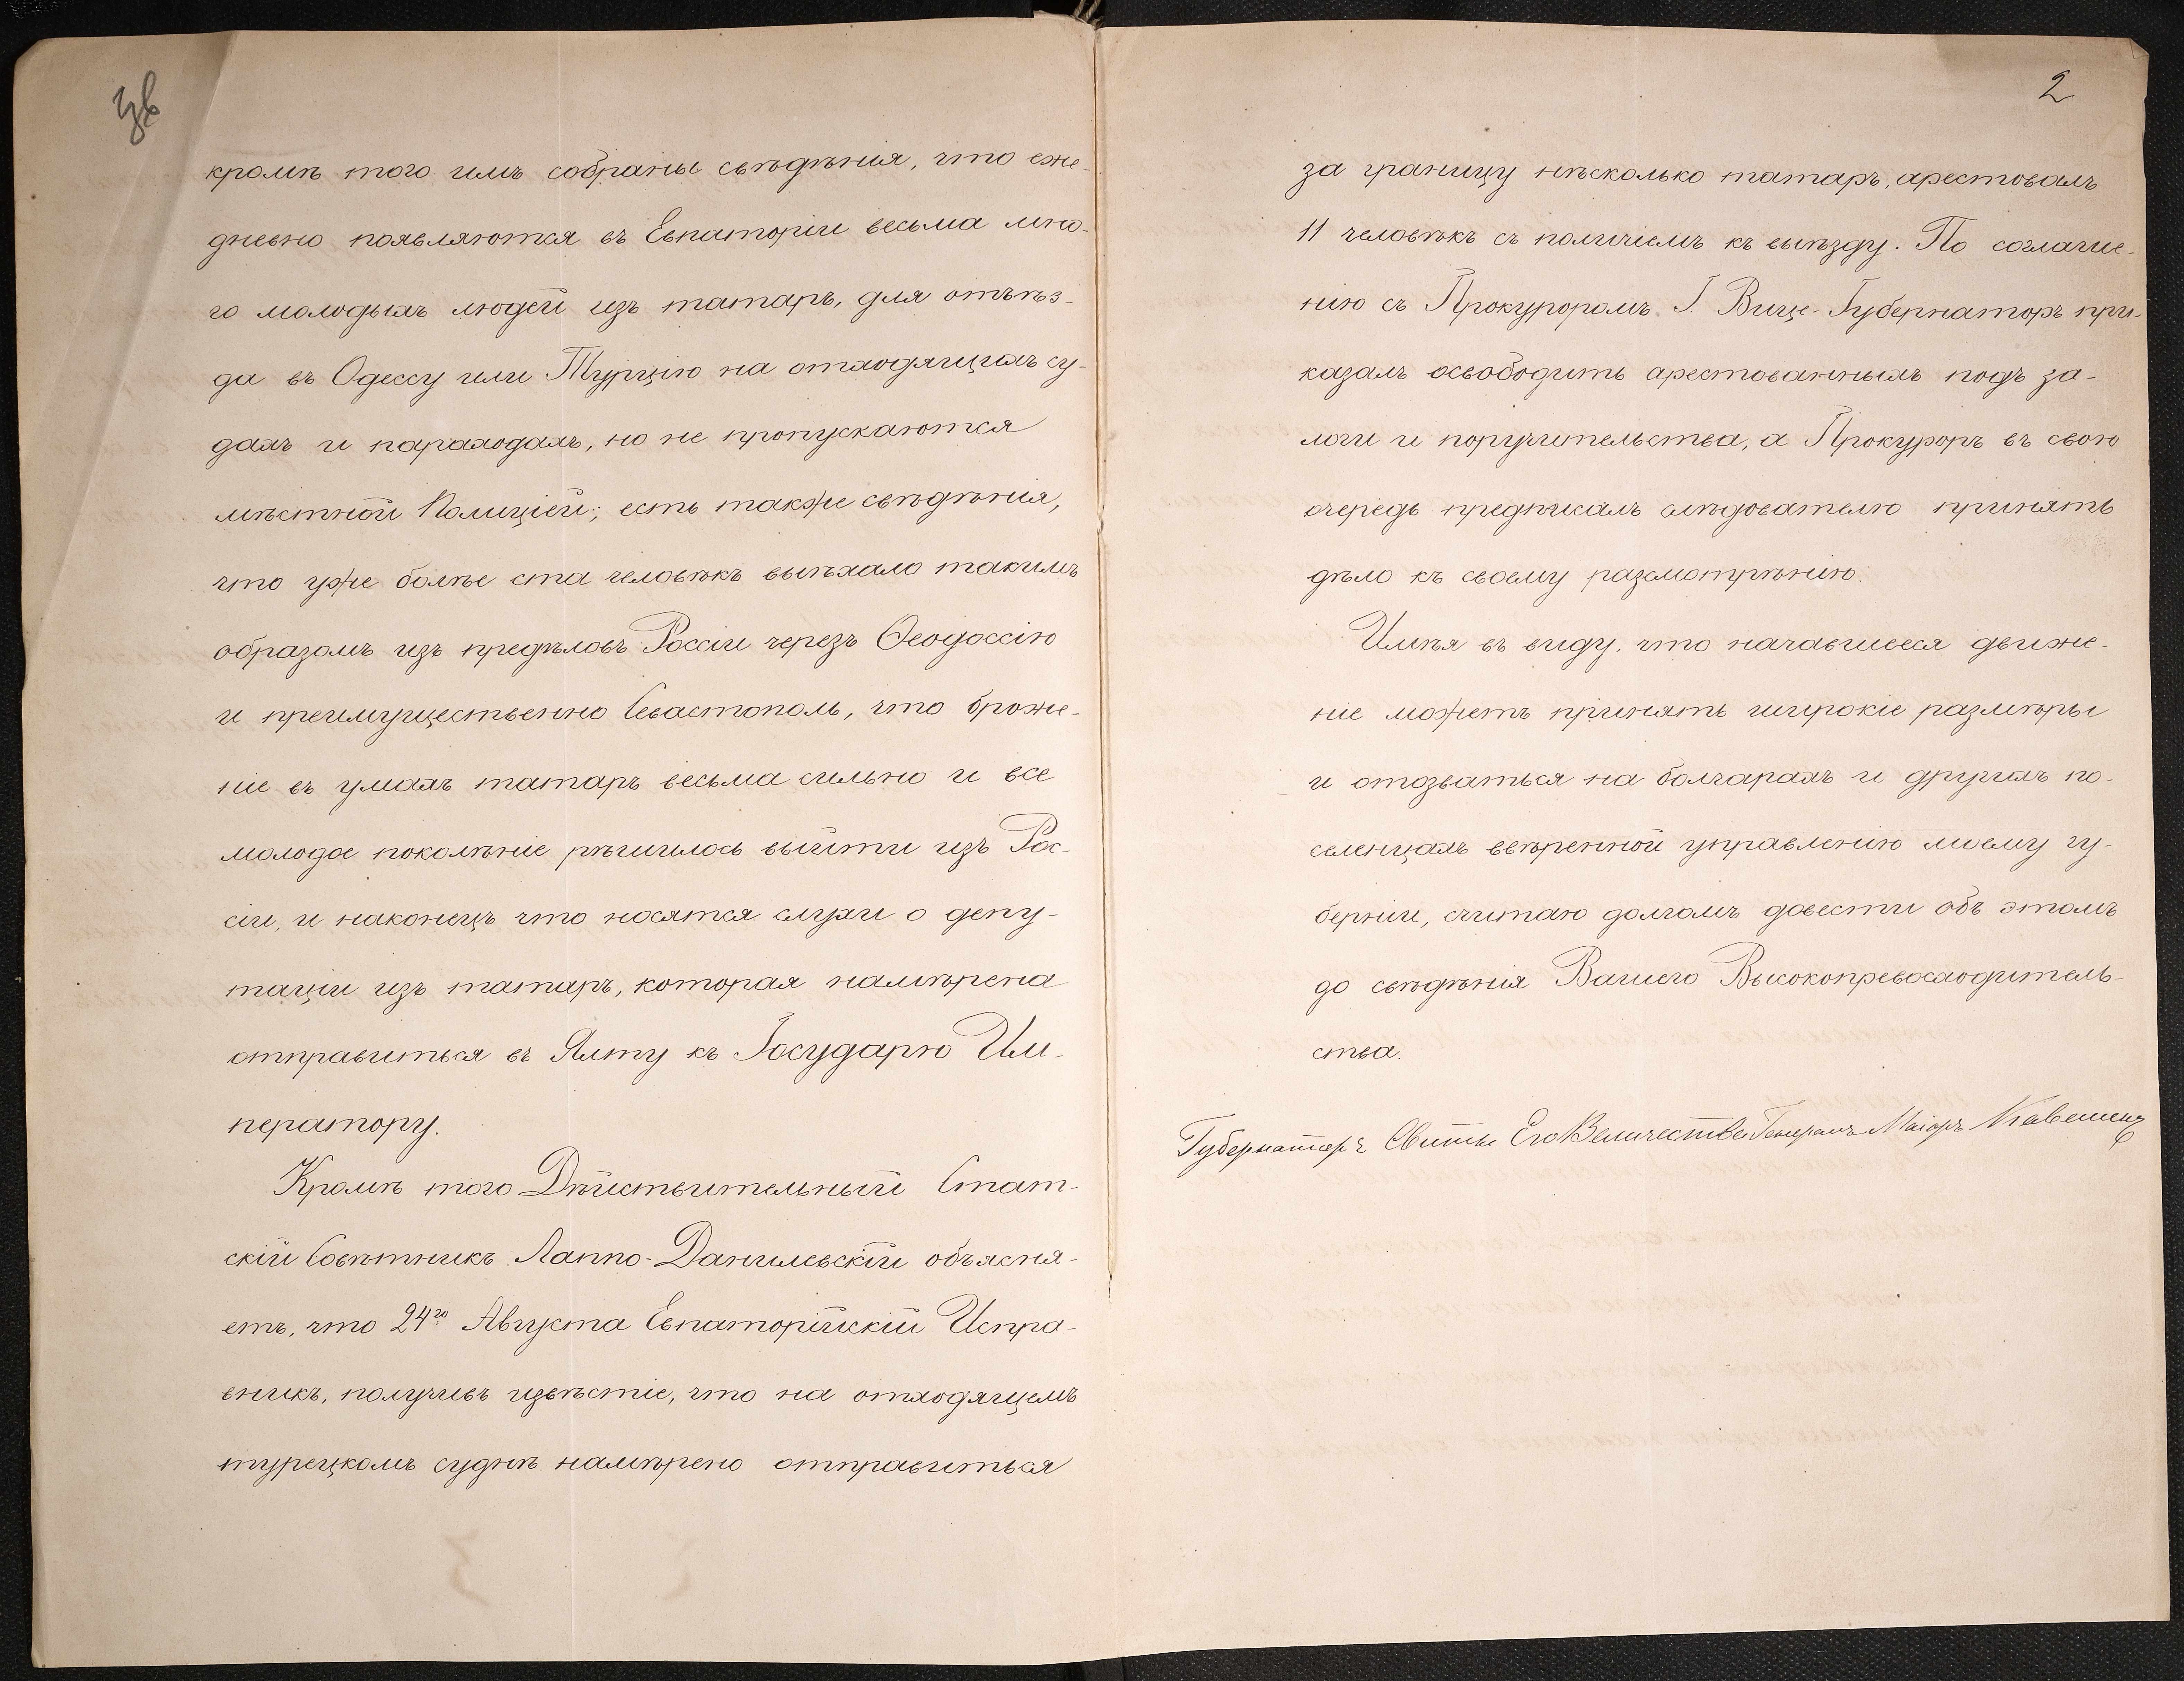 кромѣ того имъ собраны свѣдѣнія, что еже-
дневно появляются въ Евпаторіи весьма мно-
го молодыхъ людей изъ татаръ, для отъѣз-
да въ Одессу или Турцію на отходящихъ су-
дахъ и пароходахъ, но не пропускаются
мѣстной Полиціей; есть также свѣдѣнія,
что уже болѣе ста человѣкъ выѣхало такимъ
образомъ изъ предѣловъ Россіи черезъ Ѳеодоссію
и преимущественно Севастополь, что броже-
ніе въ умахъ татаръ весьма сильно и все
молодое поколѣніе рѣшилось выйти изъ Рос-
сіи, и наконецъ что носятся слухи о депу-
таціи изъ татаръ, которая намѣрена
отправиться въ Ялту къ Государю Им-
ператору.
Кромѣ того Дѣйствительный Стат-
скій Совѣтникъ Лаппо-Данилевскій объясня-
етъ, что 24го Августа Евпаторійскій Испра-
вникъ, получивъ извѣстіе, что на отходящемъ
турецкомъ суднѣ намѣрено отправиться
2
за границу нѣсколько татаръ, арестовалъ
11 человѣкъ съ поличіемъ къ выѣзду. По соглаше-
нію съ Прокуроромъ Г. Вице-Губернаторъ при-
казалъ освободить арестованныхъ подъ за-
логи и поручительства, а Прокуроръ въ свою
очередь предписалъ слѣдователю принять
дѣло къ своему разсмотрѣнію.
Имѣя въ виду, что начавшееся движе-
ніе можетъ принять широкіе размѣры
и отозваться на болгарахъ и другихъ по-
селенцахъ ввѣренной управленію моему гу-
берніи, считаю долгомъ довести объ этомъ
до свѣдѣнія Вашего Высокопревосходитель-
ства.
Губернаторъ Свиты Его Величества Генералъ Маіоръ Кавелинъ